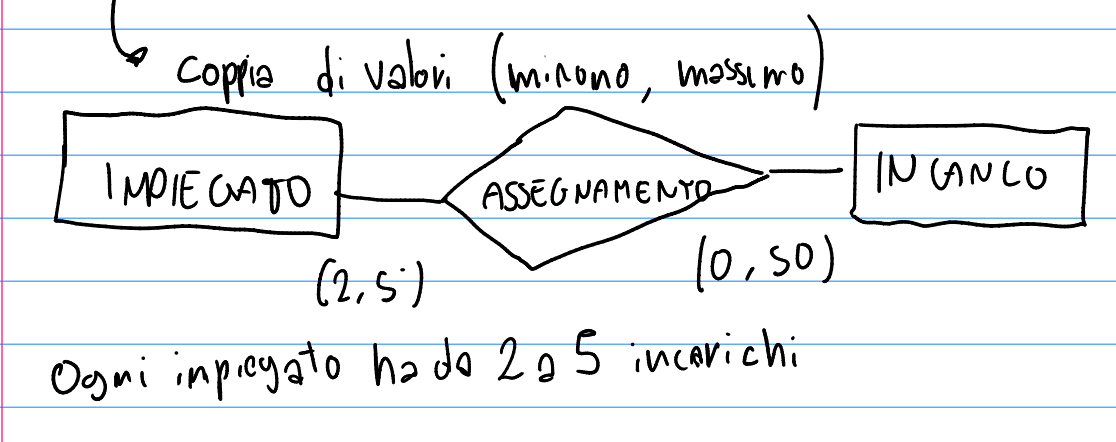 Coppia di valori (minimo, massimo)
IMPIEGATO
ASSEGNAMENTO
INCARICO
(2,5)
(0,50)
Ogni impiegato ha da 2 a 5 incarichi